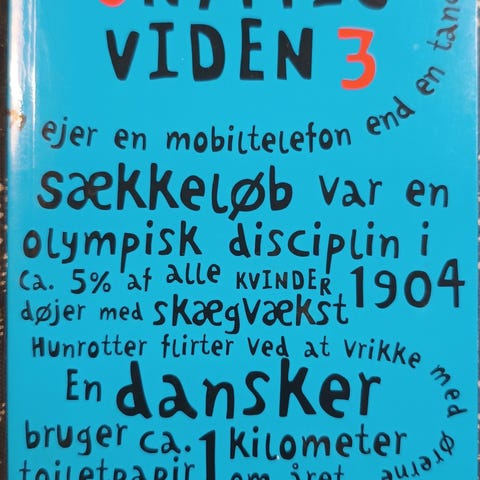 VIDEN 3
ejer en mobiltelefon end en tand
sækkeløb var en
olympisk disciplin i
1904
ca. 5% af alle KVINDER
døjer med skægvækst
Hunrotter flirter ved at vrikke med ørerne
En dansker
bruger ca. 1 kilometer
toiletpapir om året